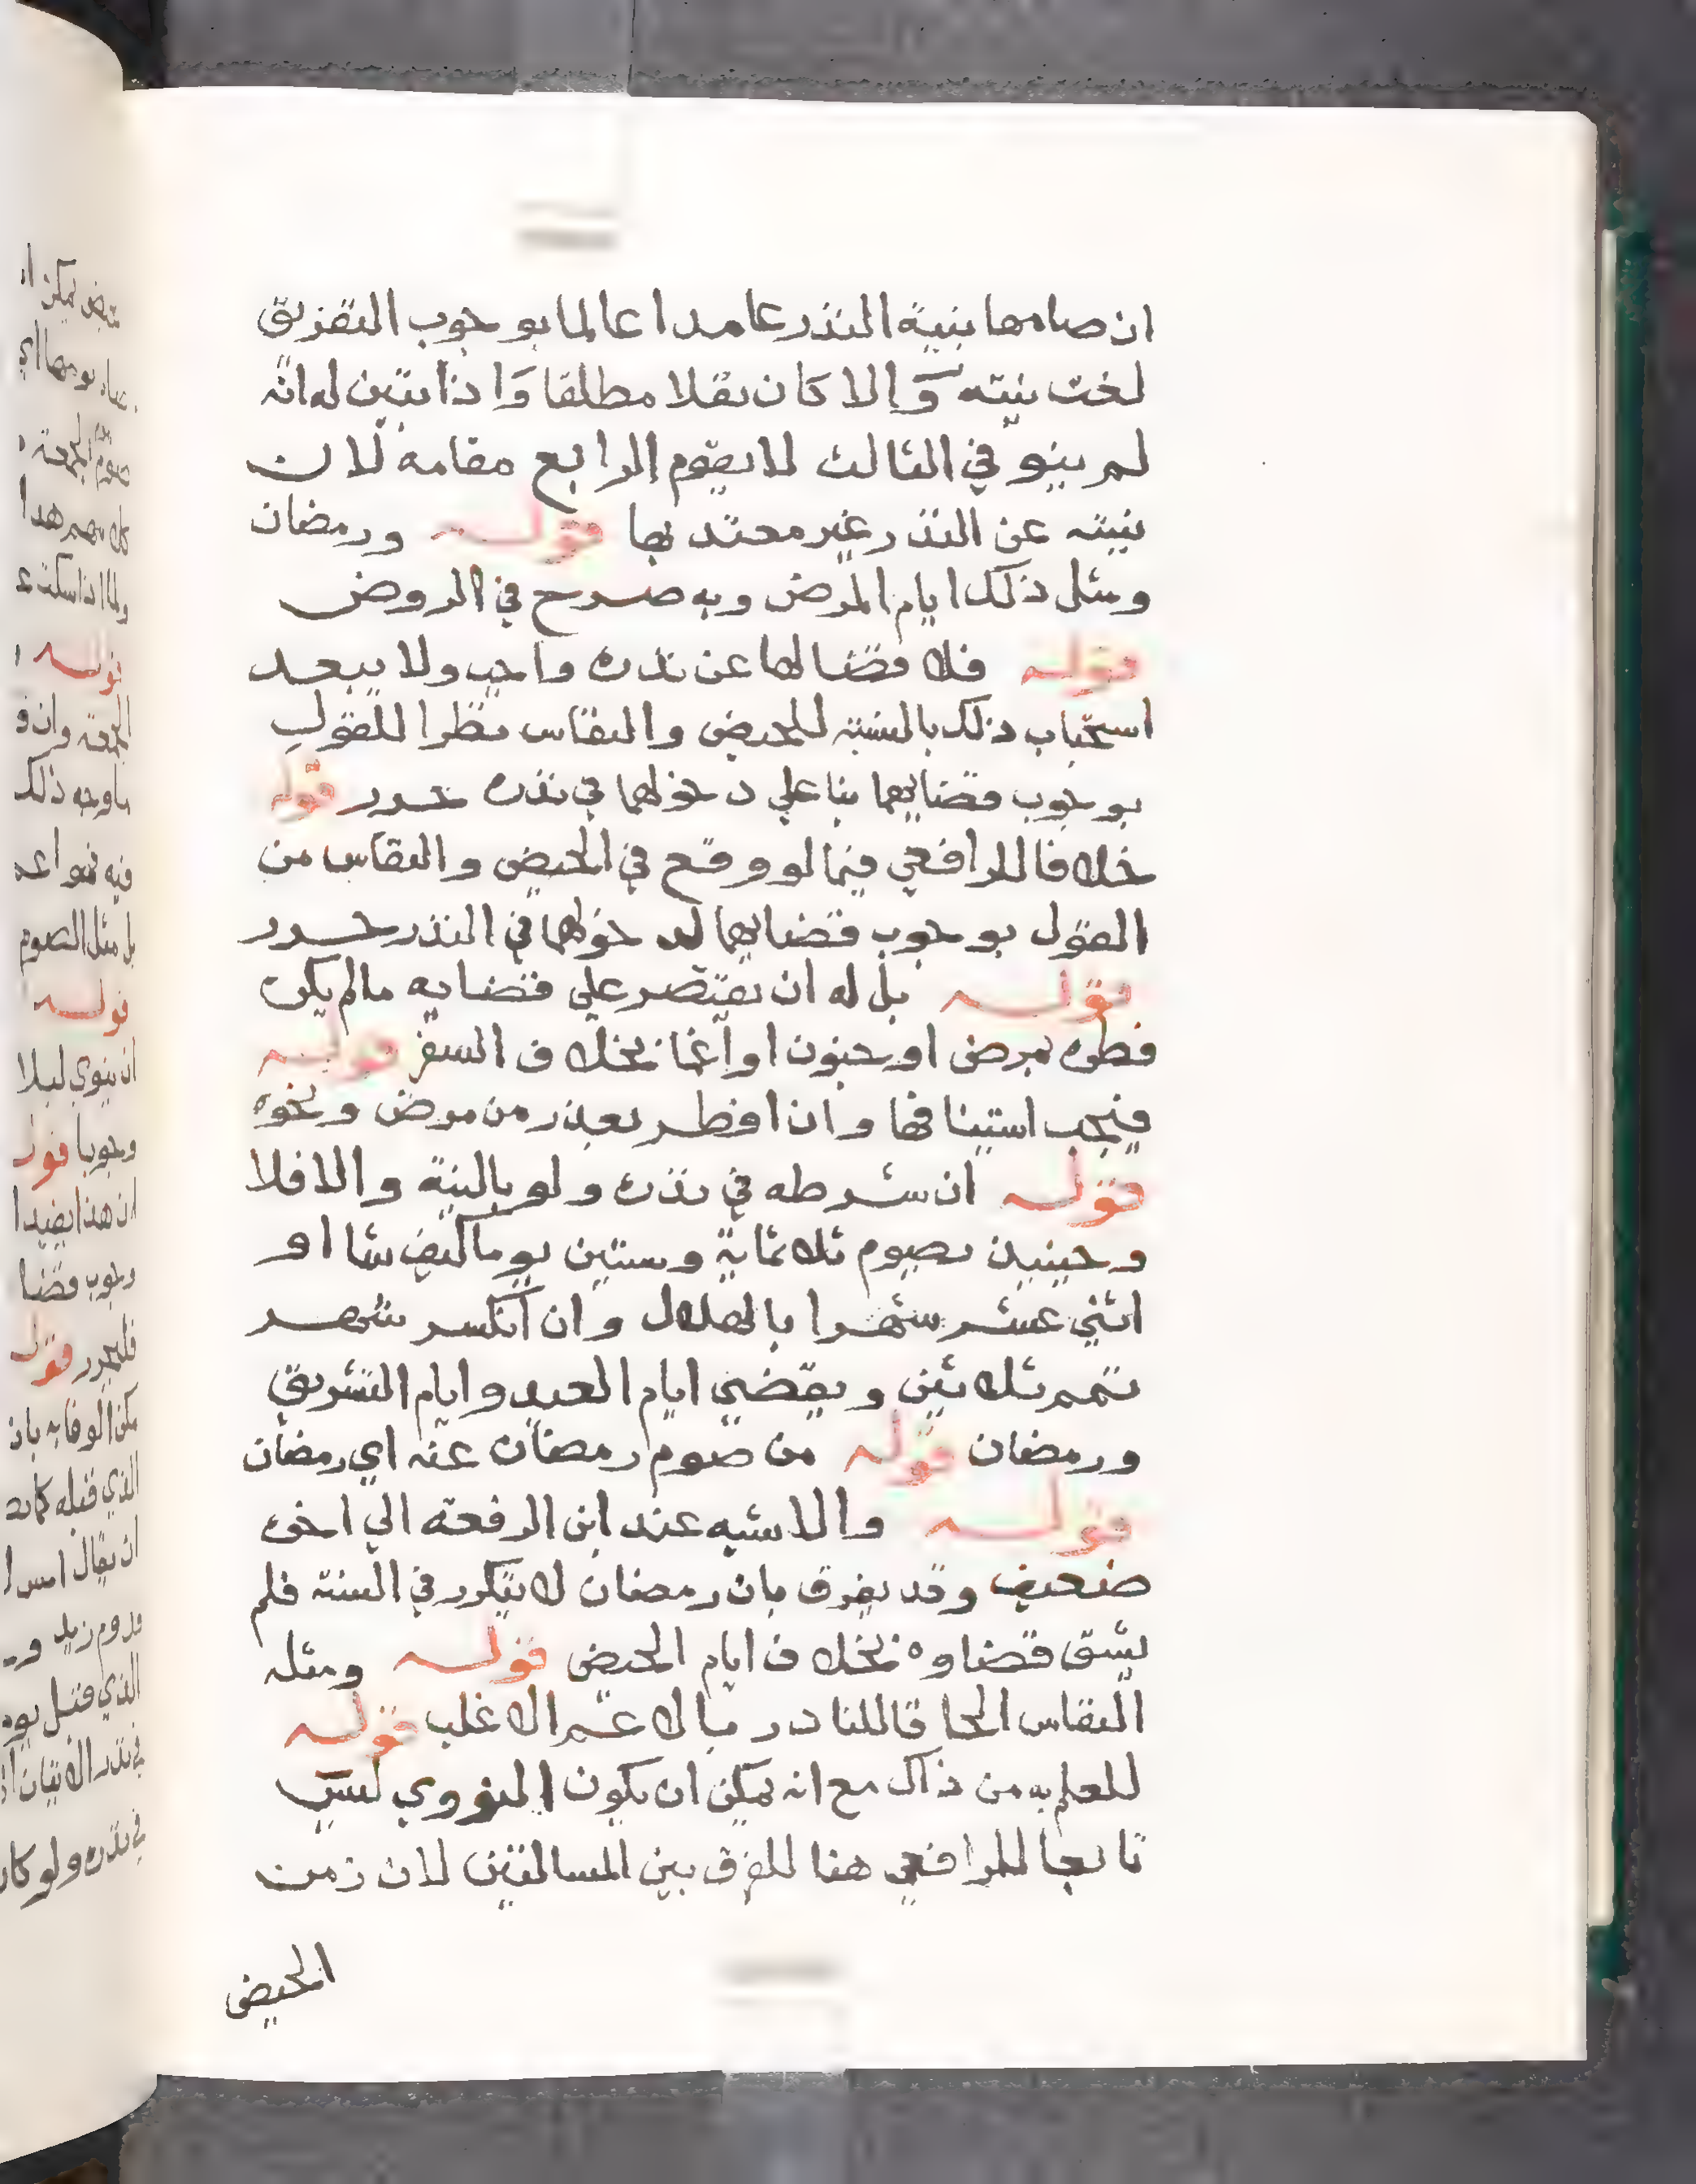 ان صامها بنية النذر عامدا عالما بوجوب التفريق
لغت نيته والا كان نفلا مطلقا واذا تبين له انه
لم ينو في الثالث لا يقوم الرابع مقامه لان
نيته عن النذر غير معتد بها قوله ورمضان
ومثل ذلك ايام المرض وبه صرح في الروض
قوله فلا قضا لها عن نذره واجب ولا يبعد
استحباب ذلك بالنسبة للحيض والنفاس نظرا للقول
بوجوب قضايهما بنا علي دخولهما في نذره حرر قوله
خلافا للرافعي فيما لو وقع في الحيض والنفاس من
القول بوجوب قضايهما لدخولهما في النذر حرر
قوله بل له ان يقتصر علي قضايه مالم يكن
فطره بمرض او جنون او اغما بخلاف السفر قوله
فيجب استينافها وان افطر بعذر من مرض ونحوه
قوله ان شرطه في نذره ولو بالنية والا فلا
وحينيذ يصوم ثلاثماية وستين يوما كيف شا او
اثني عشر شهرا بالهلال وان انكسر شهر
تمم ثلاثين ويقضي ايام العيد وايام التشريق
ورمضان قوله من صوم رمضان عنه اي رمضان
قوله والاشبه عند ابن الرفعة الي اخره
ضعيف وقد يفرق بان رمضان لا يتكرر في السنة فلم
يشق قضاوه بخلاف ايام الحيض قوله ومثله
النفاس الحاقا للنادر بالاعم الاغلب قوله
للعلم به من ذاك مع انه يمكن ان يكون النووي ليس
تابعا للرافعي هنا للفرق بين المسالتين لان زمن
الحيض